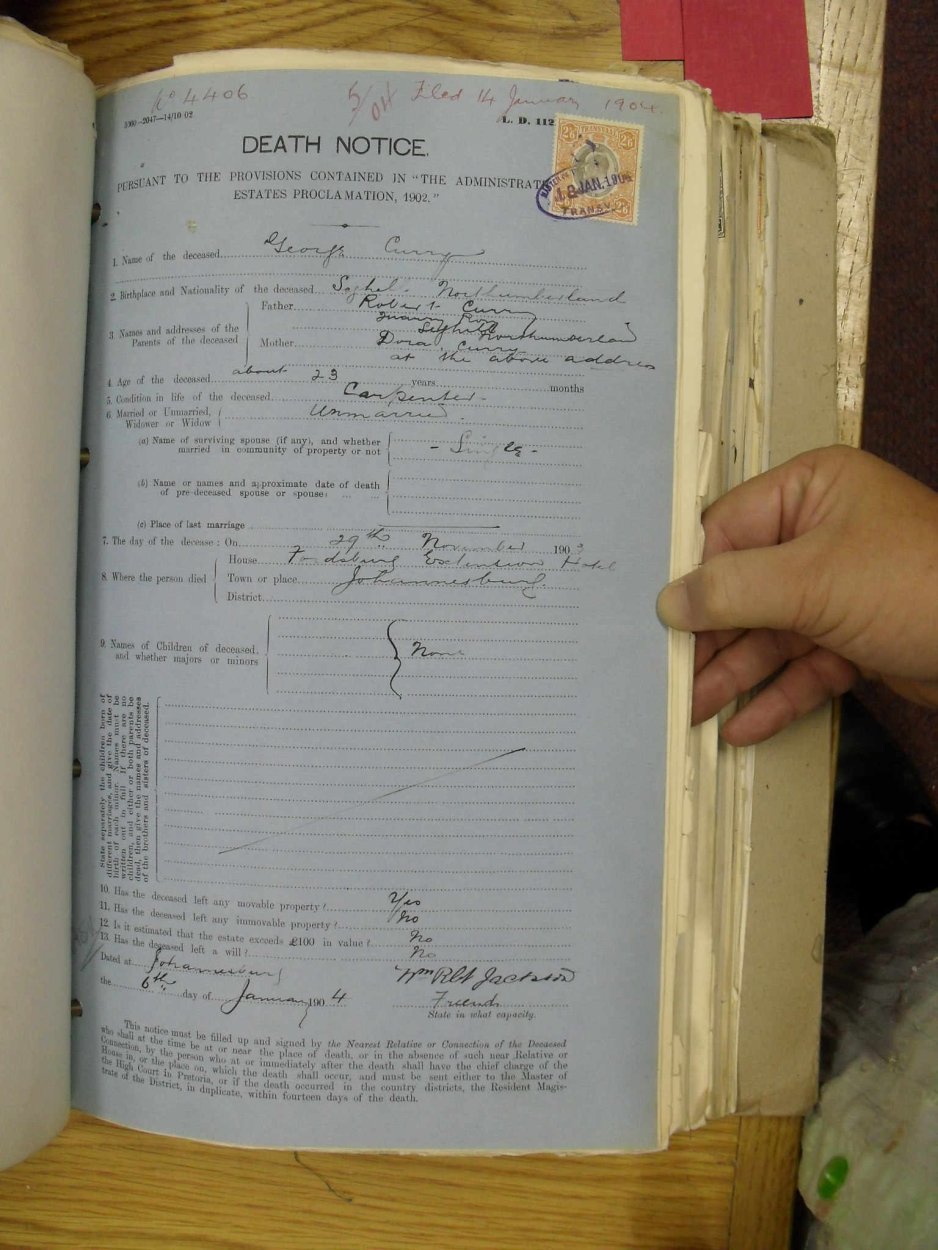 No 4406 5/04 Filed 14 January 1904.
3360—2047—14/10 02 L. D. 112
DEATH NOTICE.
PURSUANT TO THE PROVISIONS CONTAINED IN "THE ADMINISTRAT
ESTATES PROCLAMATION, 1902."
TRANSVAAL 2/6 2/6
JAN. 1904
TRANSV
2/6
1. Name of the deceased George Curry
2. Birthplace and Nationality of the deceased Seghel. Northumberland
3. Names and addresses of the Parents of the deceased
Father Robert Curry
Row
Seghill Northumberland
Mother Dora Curry
at the above address
4. Age of the deceased about 23 years months
5. Condition in life of the deceased Carpenter
6. Married or Unmarried, Widower or Widow Unmarried.
(a) Name of surviving spouse (if any), and whether
married in community of property or not - Single -
(b) Name or names and approximate date of death
of pre-deceased spouse or spouse:
(c) Place of last marriage
7. The day of the decease: On 29th November 1903
8. Where the person died
House Fordsburg Extention Hotel
Town or place Johannesburg
District
9. Names of Children of deceased,
and whether majors or minors None
State separately the children born of
different marriages, and give the date of
birth of each minor. Names must be
written out in full. If there are no
children, and either or both parents be
dead, then give the names and addresses
of the brothers and sisters of deceased.
10. Has the deceased left any movable property? Yes
11. Has the deceased left any immovable property? No
12. Is it estimated that the estate exceeds £100 in value? No
13. Has the deceased left a will? No
Dated at Johannesburg
Wm Robt Jackson
the 6th day of January 1904 Friend
State in what capacity.
This notice must be filled up and signed by the Nearest Relative or Connection of the Deceased
who shall at the time be at or near the place of death, or in the absence of such near Relative or
Connection, by the person who at or immediately after the death shall have the chief charge of the
House in, or the place on, which the death shall occur, and must be sent either to the Master of
the High Court in Pretoria, or if the death occurred in the country districts, the Resident Magis-
trate of the District, in duplicate, within fourteen days of the death.